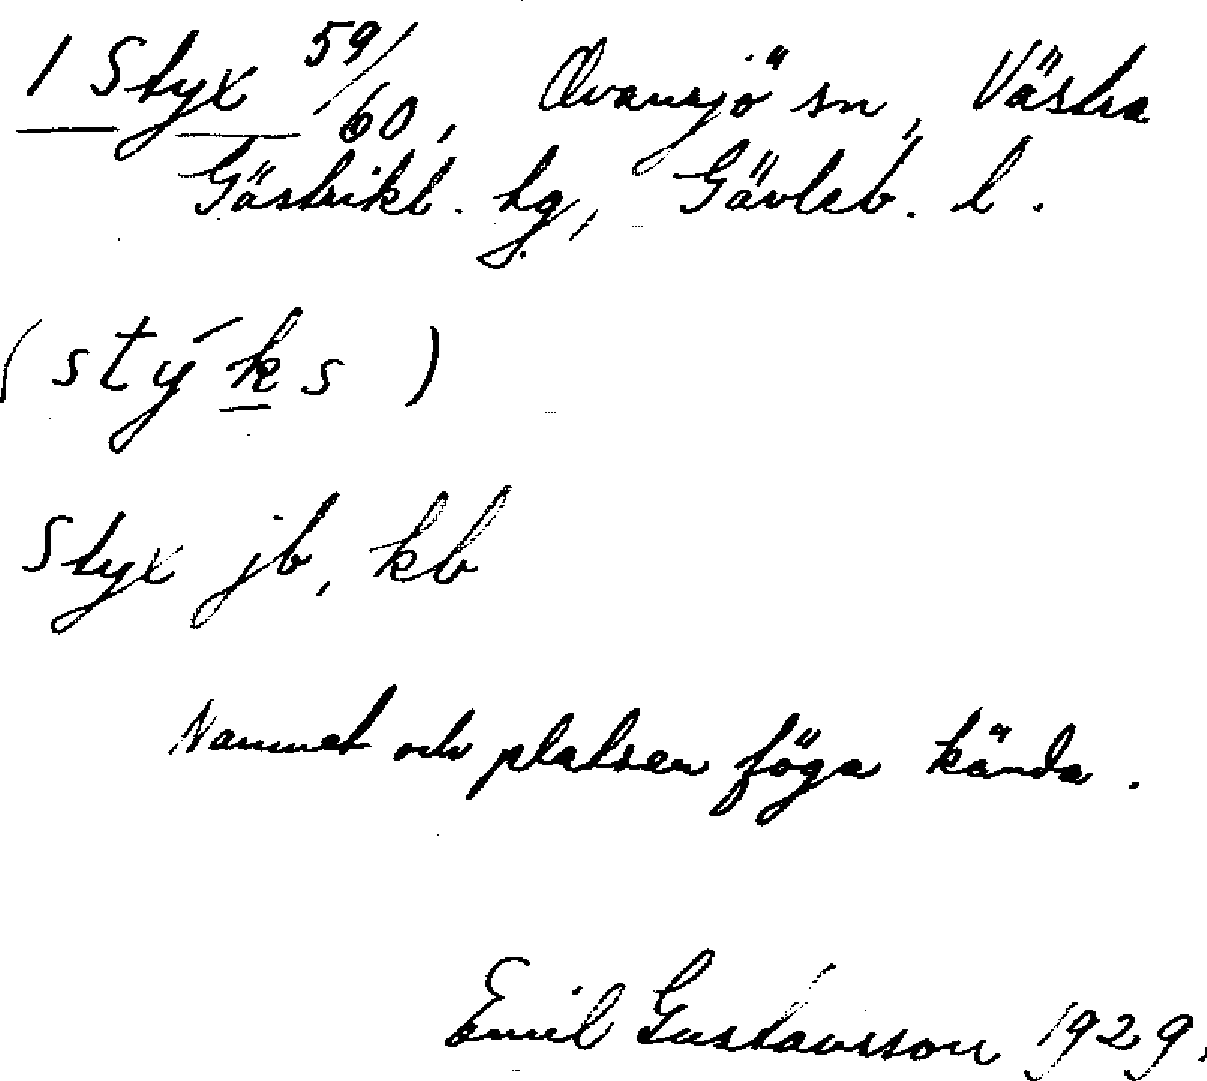 1 Styx 59/60, Ovansjö sn, Västra
Gästrikl. tg, Gävleb. l.
(stýks)
Styx jb, kb
Namnet och platsen föga kända.
Emil Gustavsson 1929.